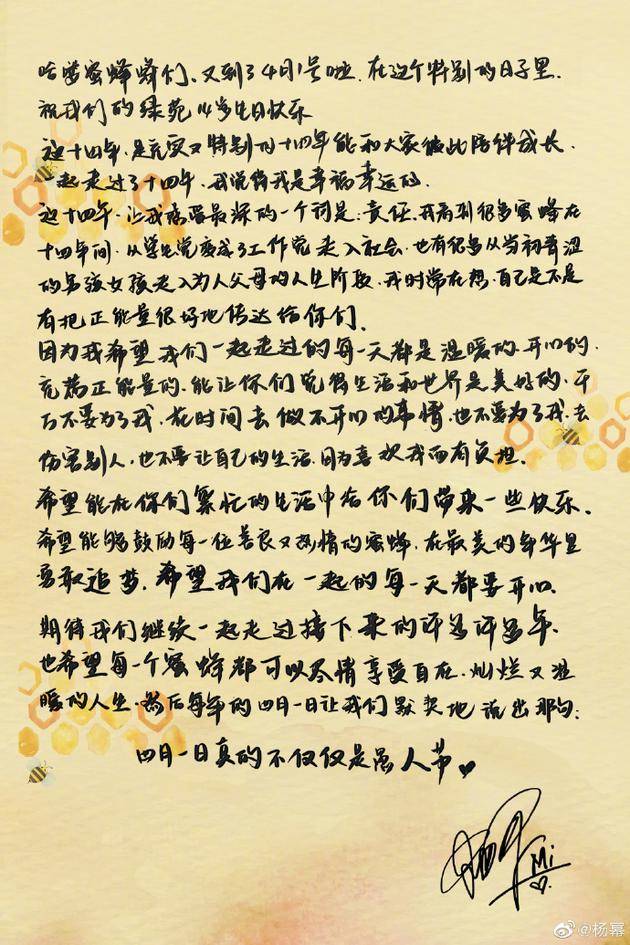 哈喽蜜蜂蜂们、又到了4月1号啦、在这个特别的日子里、
祝我们的绿苑14岁生日快乐
这十四年、是充实又特别的十四年能和大家彼此陪伴成长、
一起走过了十四年、我觉得我是幸福幸运的、
这十四年、让我感受最深的一个词是:责任、我看到很多蜜蜂在
十四年间、从学生党变成了工作党走入社会、也有很多从当初青涩
的男孩女孩走入为人父母的人生阶段、我时常在想、自己是不是
有把正能量很好地传达给你们、
因为我希望我们一起走过的每一天都是温暖的、开心的、
充满正能量的、能让你们觉得生活和世界是美好的、千
万不要为了我、花时间去做不开心的事情、也不要为了我、去
伤害别人、也不要让自己的生活、因为喜欢我而有负担、
希望能在你们繁忙的生活中给你们带来一些快乐、
希望能够鼓励每一位善良又热情的蜜蜂、在最美的年华里
勇敢追梦、希望我们在一起的每一天都要开心、
期待我们继续一起走过接下来的许多许多年、
也希望每一个蜜蜂都可以尽情享受自在、灿烂又温
暖的人生、然后每年的四月一日让我们默契地说出那句:
四月一日真的不仅仅是愚人节♥
杨幂 Mi♡
@杨幂